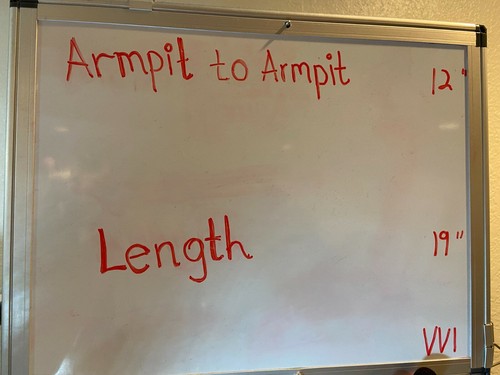 Armpit to Armpit 12"
Length 19"
VV1